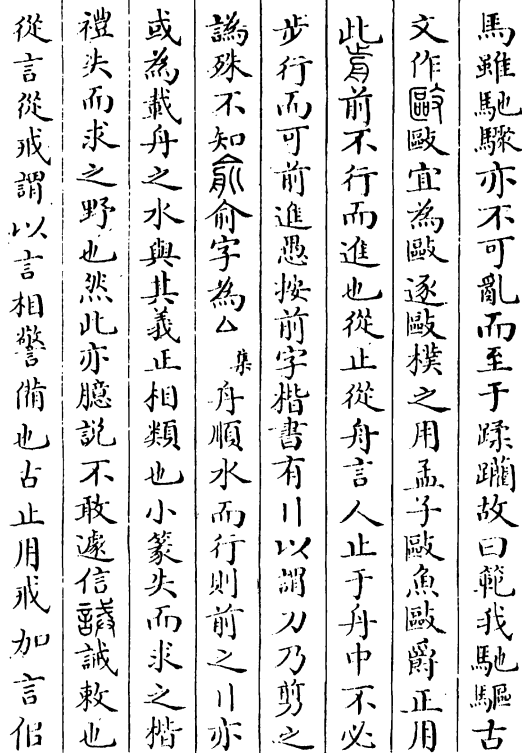 馬雖馳驟亦不可亂而至于蹂躪故曰範我馳驅古
文作敺敺宜為敺逐敺樸之用孟子敺魚敺爵正用
此歬前不行而進也從止從舟言人止于舟中不必
步行而可前進愚按前字楷書有刂以謂刀乃剪之
譌殊不知俞俞字為亼集舟順水而行則前之刂亦
或為載舟之水與其義正相類也小篆失而求之楷
禮失而求之野也然此亦臆說不敢遽信誡誡敕也
從言從戒謂以言相警備也古止用戒加言侣